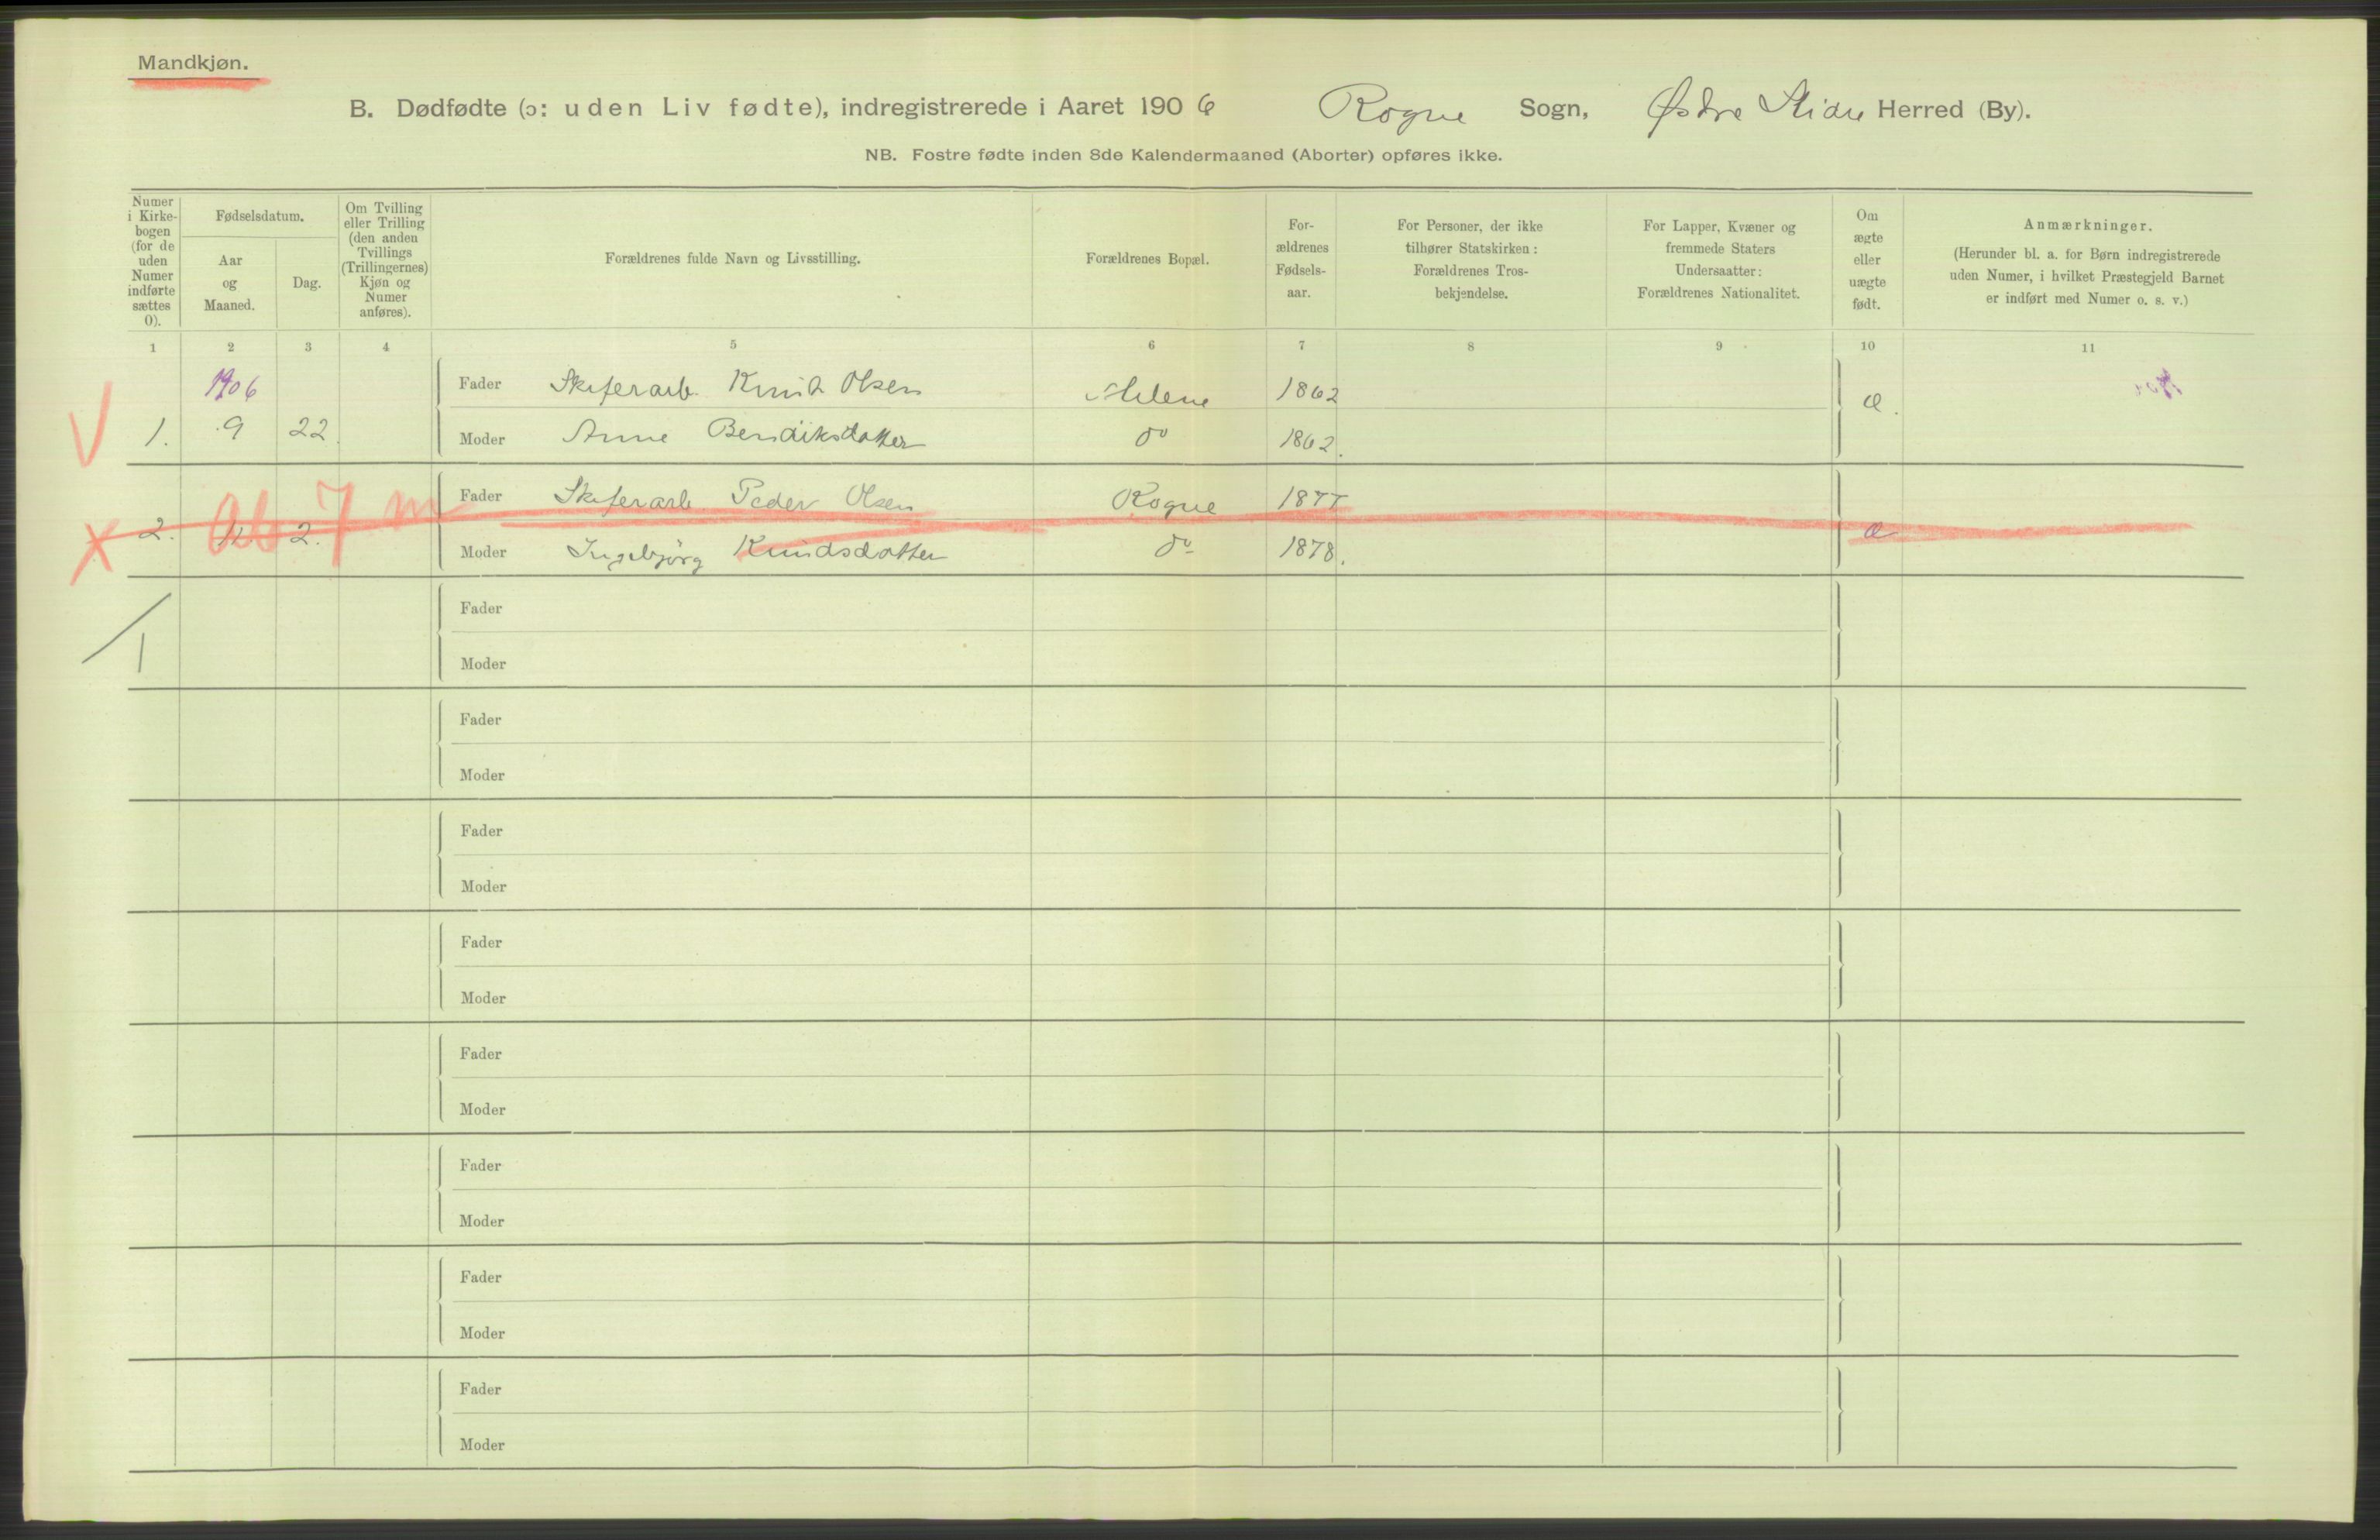 Mandkjøn.
B. Dødfødte (ɔ: uden Liv fødte), indregistrerede i Aaret 1906 Rogne Sogn, Østre Slidre Herred (By).
NB. Fostre fødte inden 8de Kalendermaaned (Aborter) opføres ikke.
Numer i Kirkebogen (for de uden Numer indførte sættes 0).
Fødselsdatum.
Aar og Maaned.
Dag.
Om Tvilling eller Trilling (den anden Tvillings (Trillingernes) Kjøn og Numer anføres).
Forældrenes fulde Navn og Livsstilling.
Forældrenes Bopæl.
Forældrenes Fødselsaar.
For Personer, der ikke tilhører Statskirken: Forældrenes Trosbekjendelse.
For Lapper, Kvæner og fremmede Staters Undersaatter: Forældrenes Nationalitet.
Om ægte eller uægte født.
Anmærkninger.
(Herunder bl. a. for Børn indregistrerede uden Numer, i hvilket Præstegjeld Barnet er indført med Numer o. s. v.)
1 2 3 4 5 6 7 8 9 10 11
1906
Fader Skiferarb. Knud Olsen 1862 æ.
1. 9 22. Moder Anne Bendiksdatter do 1862.
Fader Skiferarb. Peder Olsen Rogne 1877
2. Ab 2. 7 m æ
Moder Ingebjørg Knudsdatter do 1878.
1
Fader
Moder
Fader
Moder
Fader
Moder
Fader
Moder
Fader
Moder
Fader
Moder
Fader
Moder
Fader
Moder